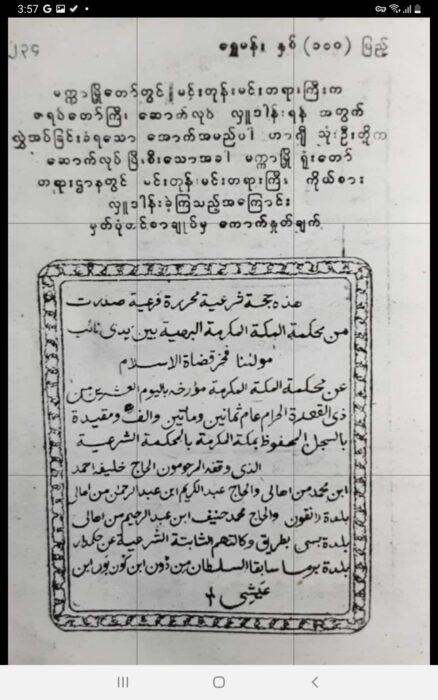 3:57
၂၃၄ ရွှေမန်း နှစ် (၁၀၀) ပြည့်
မက္ကာမြို့တော်တွင် မင်းတုန်းမင်းတရားကြီးက
ဇရပ်တော်ကြီး ဆောက်လုပ် လှူဒါန်းရန် အတွက်
လွှဲအပ်ခြင်းခံရသော အောက်အမည်ပါ ဟာဂျီ သုံးဦးတို့က
ဆောက်လုပ် ပြီးစီးသောအခါ မက္ကာမြို့ ရုံးတော်
တရားဌာနတွင် မင်းတုန်းမင်းတရားကြီး ကိုယ်စား
လှူဒါန်းခဲ့ကြသည့်အကြောင်း
မှတ်ပုံတင်စာချုပ်မှ ကောက်နှုတ်ချက်
هذه حجة شرعية محررة فرعية صدرت
من محكمة المكة المكرمة البهية بين يدي نائب
مولانا فخر قضاة الاسلام
عن محكمة المكة المكرمة مؤرخه باليوم العشرين من
ذى القعدة الحرام عام ثمانين وماتين والف ومقيدة
بالسجل المحفوظ بمكة المكرمة بالمحكمة الشرعية
الذى وقفه المرحومون الحاج خليفه احمد
ابن محمد من اهالى والحاج عبد الكريم ابن عبد الرحمن من اهالى
بلدة رانقون والحاج محمد حنيف ابن عبد الرحيم من اهالى
بلدة بسى بطريق وكالتهم الثابتة الشرعية عن حكمدار
بلدة برما سابقا السلطان من دون ابن كون بور ابن